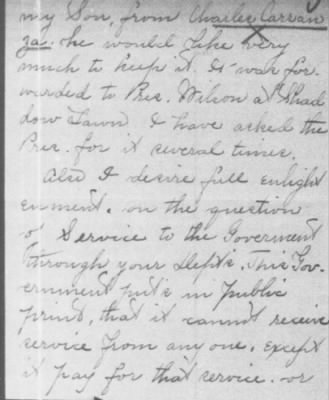 my Son, from Charles Carran
za. he would like very
much to keep it. It was for-
warded to Pres. Wilson at Shad
dow Lawn. I have asked the
Pres. for it several times.
Also I desire full enlight
enment. on the question
o' Service to the Goverment
through your Depts. This Gov-
ernment puts in public
print, that it cannot receive
service from any one. except
it pay for that service. or